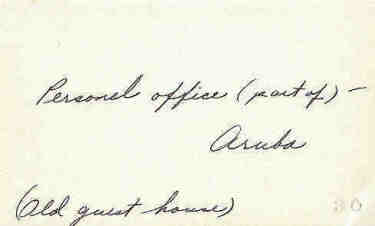 Personel office (part of) –
Aruba
(Old guest house)
30